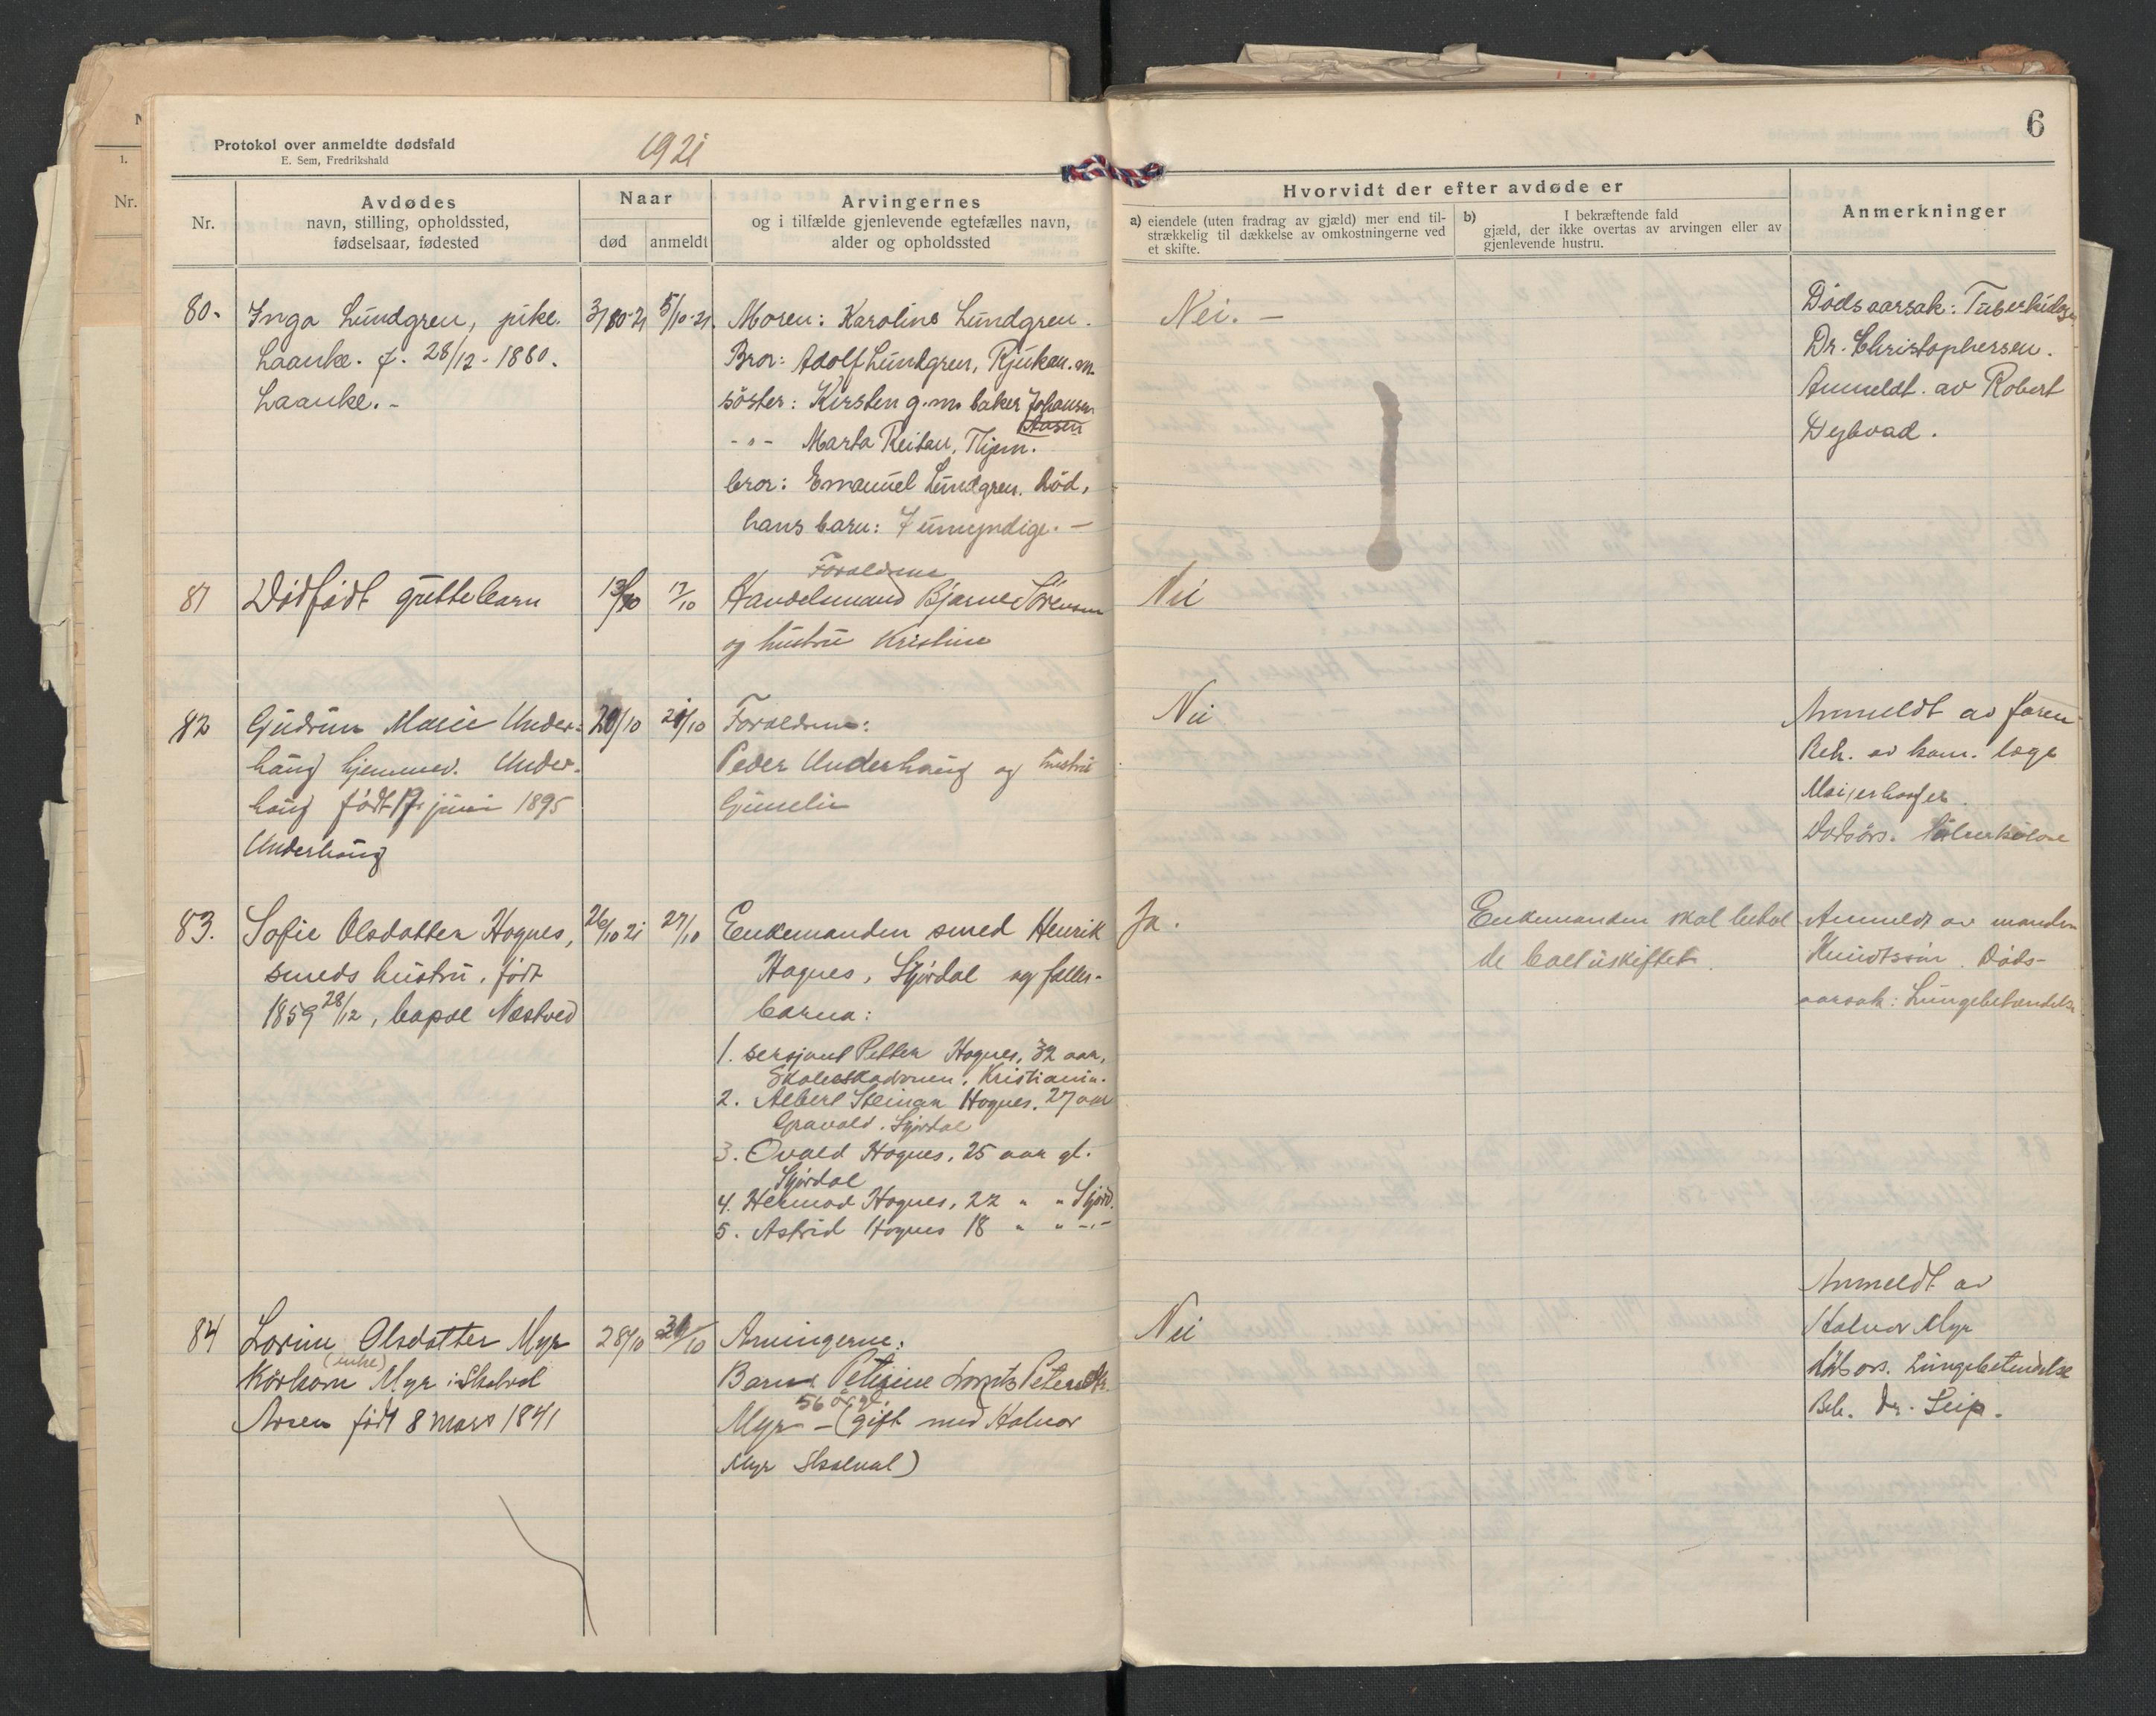 Protokol over anmeldte dødsfald
E. Sem, Fredrikshald
1921
6
Nr.
Avdødes
navn, stilling, opholdssted,
fødselsaar, fødested
Naar
død
anmeldt
Arvingernes
og i tilfælde gjenlevende egtefælles navn,
alder og opholdssted
Hvorvidt der efter avdøde er
a) eiendele (uten fradrag av gjæld) mer end til-
strækkelig til dækkelse av omkostningerne ved
et skifte.
b) I bekræftende fald
gjæld, der ikke overtas av arvingen eller av
gjenlevende hustru.
Anmerkninger
80.
Inga Lundgren, pike.
Laanke. f. 28/12-1880.
Laanke. -
3/10-21
5/10-21.
Moren: Karoline Lundgren.
Bror: Adolf Lundgren, Rjukan.
søster: Kirsten g.m. baker Johansen
Aasen
-"- Marta Reitan, Thjem.
bror: Emanuel Lundgren. død,
hans barn: 7 umyndige. -
Nei. -
Dødsaarsak: Tuberkulose
Dr. Christophersen.
Anmeldt av Robert
Dybvad.
81
Dødfødt guttebarn
13/10
17/10
Forældrene
Handelsmand Bjarne Sørensen
og hustru Kristine
Nei
82
Gudrun Marie Under-
haug hjemmev. Under-
haug født 17 juni 1895
Underhaug
20/10
21/10
Forældrene:
Peder Underhaug og hustru
Gunelie
Nei
Anmeldt av faren
Beh. av kom. læge
Dødsårs. Tuberkulose
83.
Sofie Olsdatter Hognes,
smeds hustru, født
1859 28/12, bopæl Næstved
26/10 21
27/10
Enkemanden smed Henrik
Hognes, Stjørdal og fælles-
barna:
1. sersjant Petter Hognes, 32 aar,
Skoleeskadronen, Kristiania.
2. Albert Steinar Hognes. 27 aar
Stjørdal
3. Ovald Hognes, 25 aar gl.
Stjørdal
4. Hermod Hognes, 22 " " Stjørd.
5. Astrid Hognes 18 " " -"-
Ja.
Enkemanden skal behol
de boet uskiftet.
Anmeldt av manden
Døds-
aarsak: Lungebetændelse
84
Lorine Olsdatter Myr
(enke)
Kårkone Myr i Skatval
Åsen født 8 mars 1841
28/10
Arvingerne:
Barn Petrine
56 år gl.
Myr - (gift med Halvor
Myr Skatval)
Nei
Anmeldt av
Halvor Myr
Dødsårs. Lungebetændelse
Beh. dr. Leip.